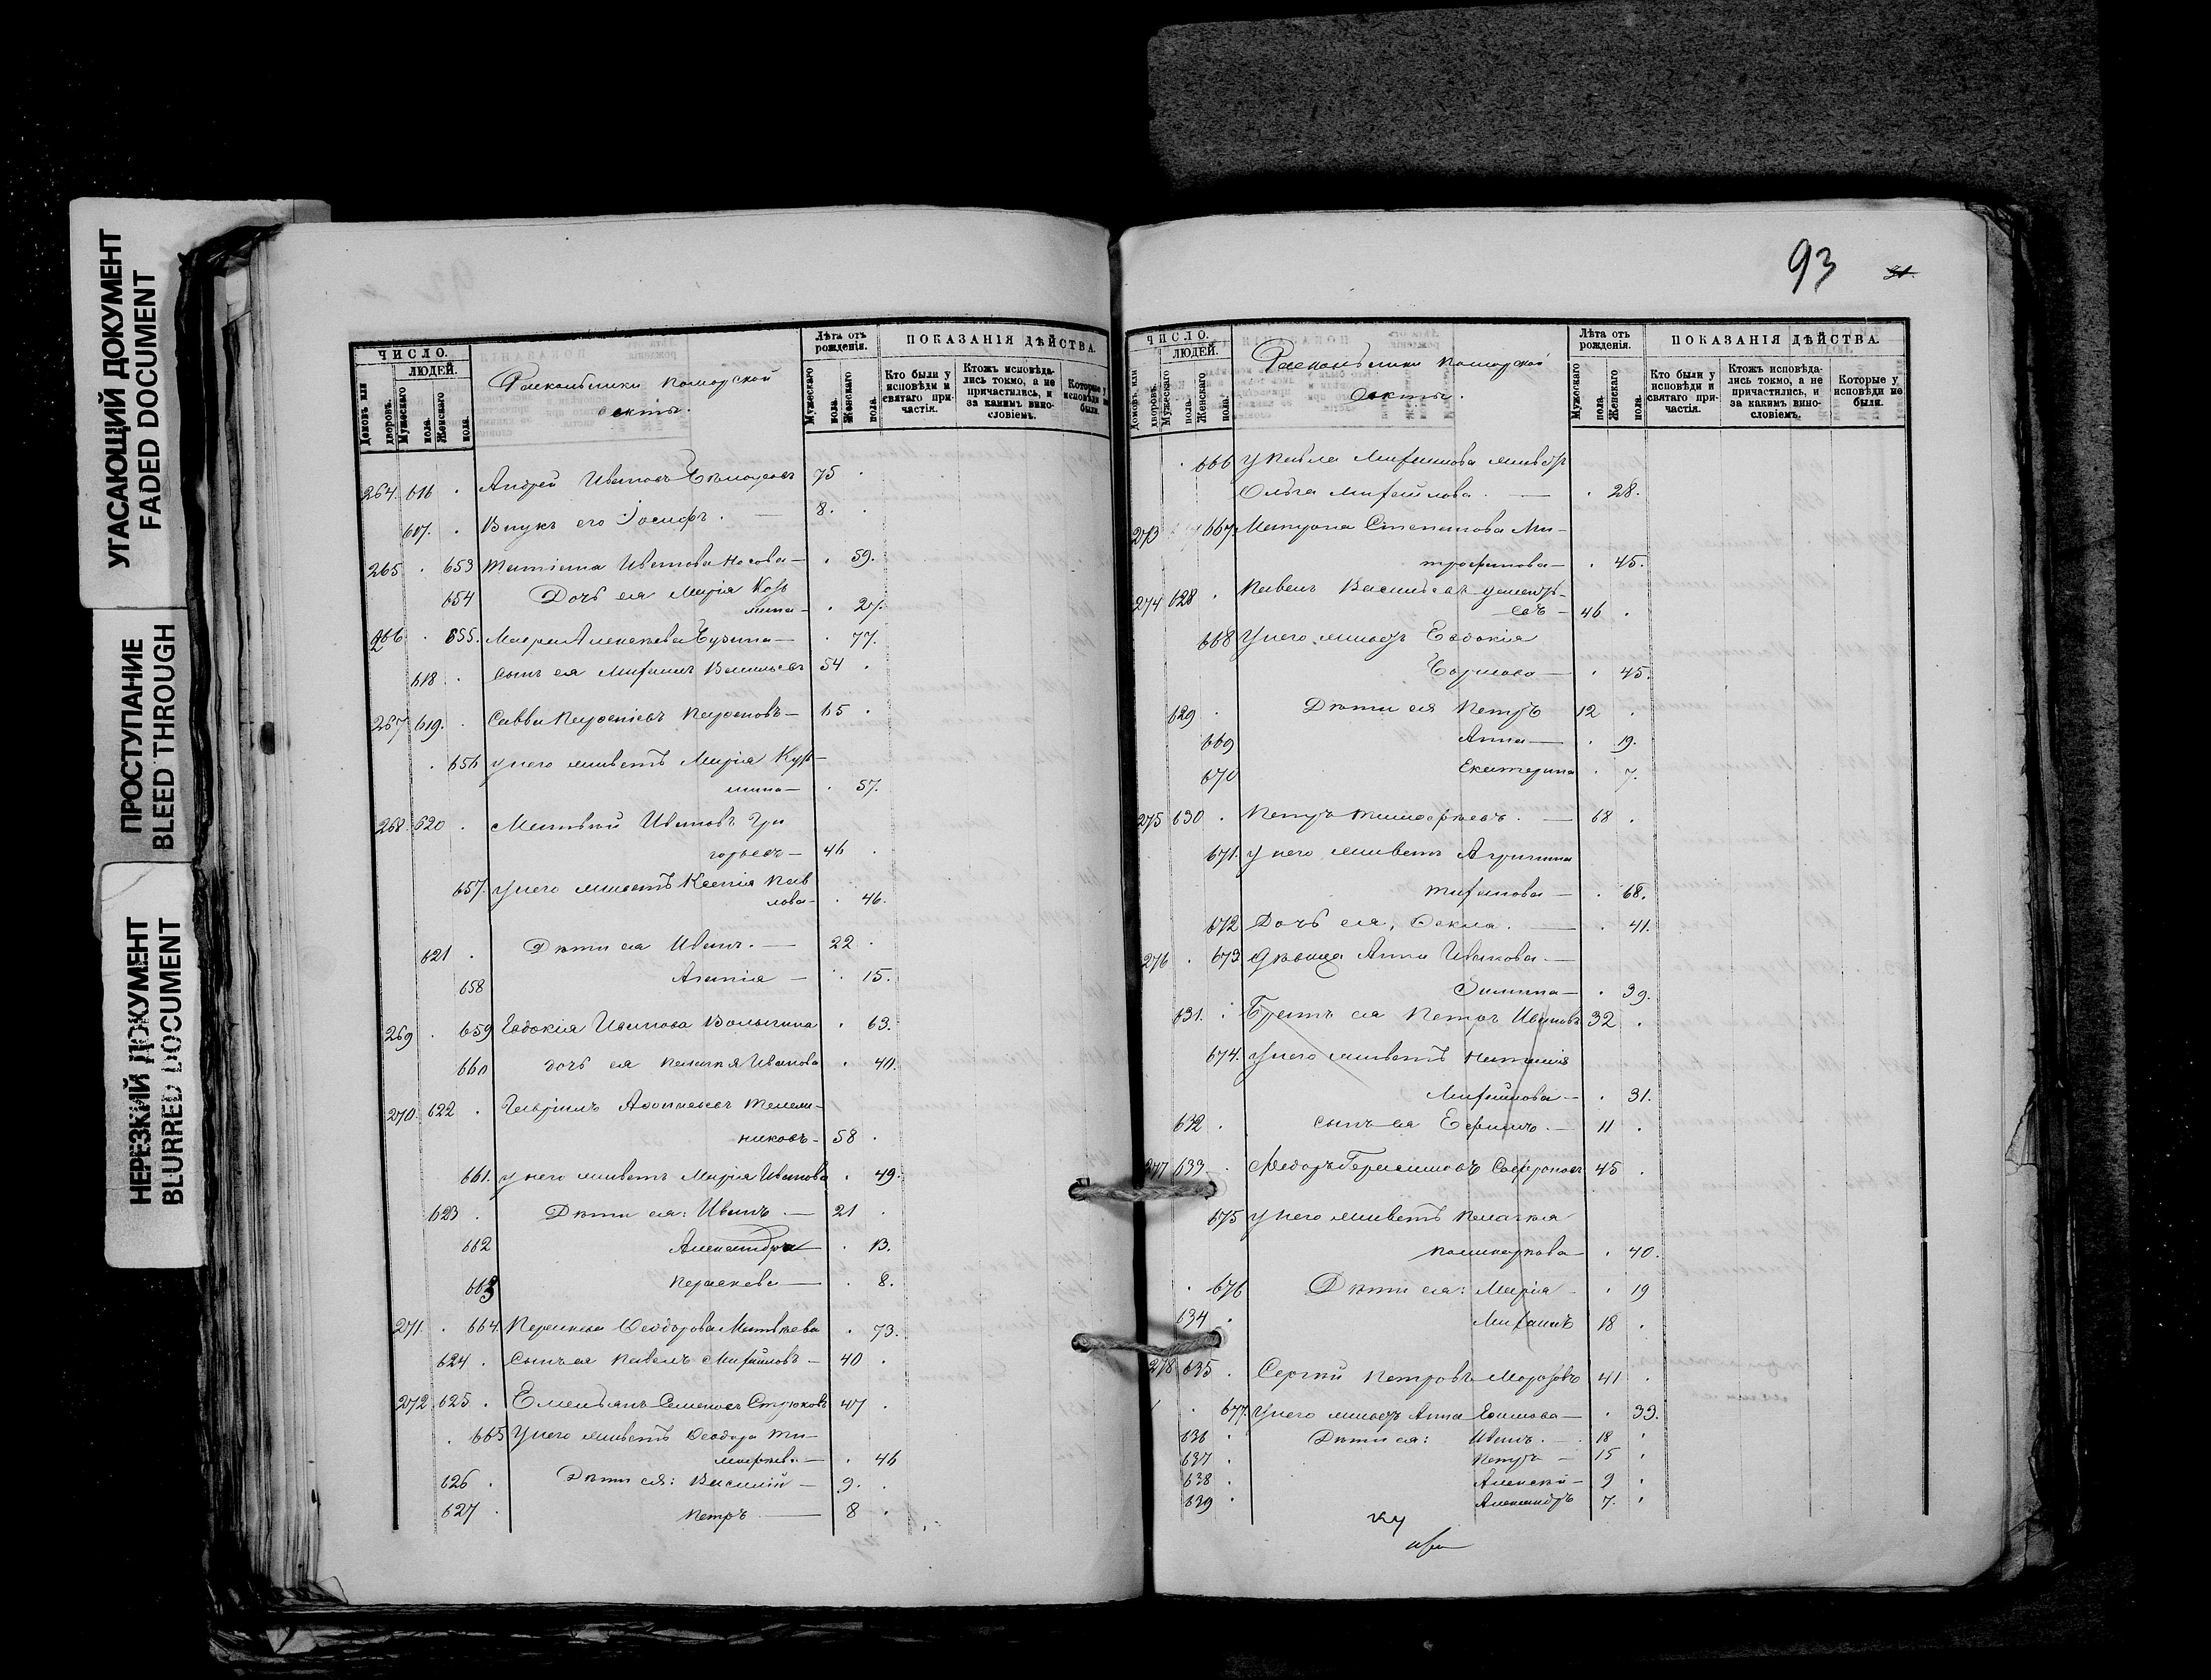 УГАСАЮЩИЙ ДОКУМЕНТ
FADED DOCUMENT
ПРОСТУПАНИЕ
BLEED THROUGH
НЕРЕЗКИЙ ДОКУМЕНТ
BLURRED DOCUMENT
ЧИСЛО.
ЛЮДЕЙ.
Домовъ или дворовъ.
Мужескаго пола.
Женскаго пола.
Раскольники поморской
секты.
Лѣта отъ рожденія.
Мужескаго пола.
Женскаго пола.
ПОКАЗАНІЯ ДѢЙСТВА.
Кто были у исповѣди и святаго причастія.
Ктожъ исповѣдались токмо, а не причастились, и за какимъ винословіемъ.
Которые у исповѣди не были.
264. 616 Андрей Ивановъ 75
617. Внукъ его Іосифъ. — 8.
265 653 Татіана Иванова Носова — 59.
654 Дочь ея Марія Козь
мина — 27.
266 655. Алексѣева — 77.
618 сынъ ея Михаилъ Васильевъ 54
267 619. Савва 65
656 у него живетъ Марія Кузь-
мина — 57.
268 620 Матвѣй Ивановъ Гри
горьевъ — 46
657. у него живетъ Ксенія Пав
лова — 46.
621 Дѣти ея Иванъ. — 22
658 Агапія — 15.
269 659 Евдокія Иванова 63.
660 дочь ея Пелагія Иванова 40.
270. 622 Гавріилъ
никовъ — 58
661. у него живетъ Марія Иванова 49.
623 Дѣти ея: Иванъ. — 21
662 Александра — 13.
663 Параскева — 8.
271. 664 Параскева Ѳеодорова Матвѣева 73.
624 Сынъ ея Павелъ Михайловъ — 40
272 625 Емельянъ Семеновъ Стрюковъ 47
665 У него живетъ Ѳеодора Ти-
моѳеева — 46
626 Дѣти ея: Василій — 9.
627 Петръ — 8
93
31.
ЧИСЛО.
ЛЮДЕЙ.
Домовъ, или дворовъ.
Мужескаго пола.
Женскаго пола.
Раскольники поморской
секты.
Лѣта отъ рожденія.
Мужескаго пола.
Женскаго пола.
ПОКАЗАНІЯ ДѢЙСТВА.
Кто были у исповѣди и святаго причастія.
Ктожъ исповѣдались токмо, а не причастились, и за какимъ винословіемъ.
Которые у исповѣди не были.
666 у Павла Михайлова живетъ
Ольга Михайлова. — 28.
273 667. Матрона Степанова Ми-
трофанова — 45.
274 628 Павелъ Васильевъ
46
668 У него живетъ Евдокія
45.
629 Дѣти ея Петръ 12
669 Анна — 19.
670 Екатерина 7.
275 630 Петръ Тимоѳеевъ. — 68
671. у него живетъ Агрипина
68.
672 Дочь ея, Ѳекла. — 41.
276 673 дѣвица Анна Иванова —
Зимина — 39.
631. Братъ ея Петръ Ивановъ 32
674. У него живетъ Наталія
Михайлова — 31.
632 сынъ ея Ефимъ. — 11
277 633 Ѳедоръ Герасимовъ Сафроновъ 45
675 У него живетъ Пелагія
Поликарпова — 40.
676 Дѣти ея: Марія 19
634 Михаилъ 18
278 635 Сергій Петровъ Морозовъ 41
677. У него живетъ Анна Ефимова — 33.
636 Дѣти ея: Иванъ. — 18
637 Петръ — 15
638 Алексѣй — 9
639 Александръ 7.